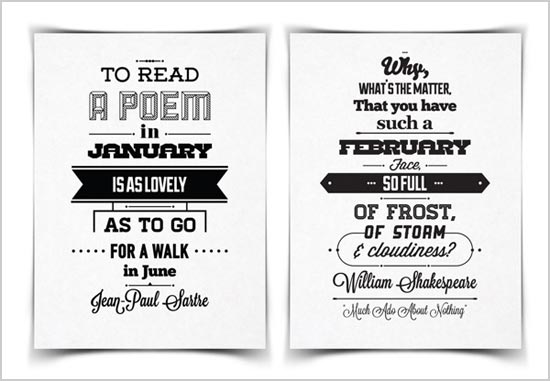 TO READ
A POEM
in
JANUARY
IS AS LOVELY
AS TO GO
FOR A WALK
in June
Jean-Paul Sartre
Why,
WHAT'S THE MATTER,
That you have
such a
FEBRUARY
Face,
SO FULL
OF FROST,
OF STORM
& cloudiness?
William Shakespeare
"Much Ado About Nothing"